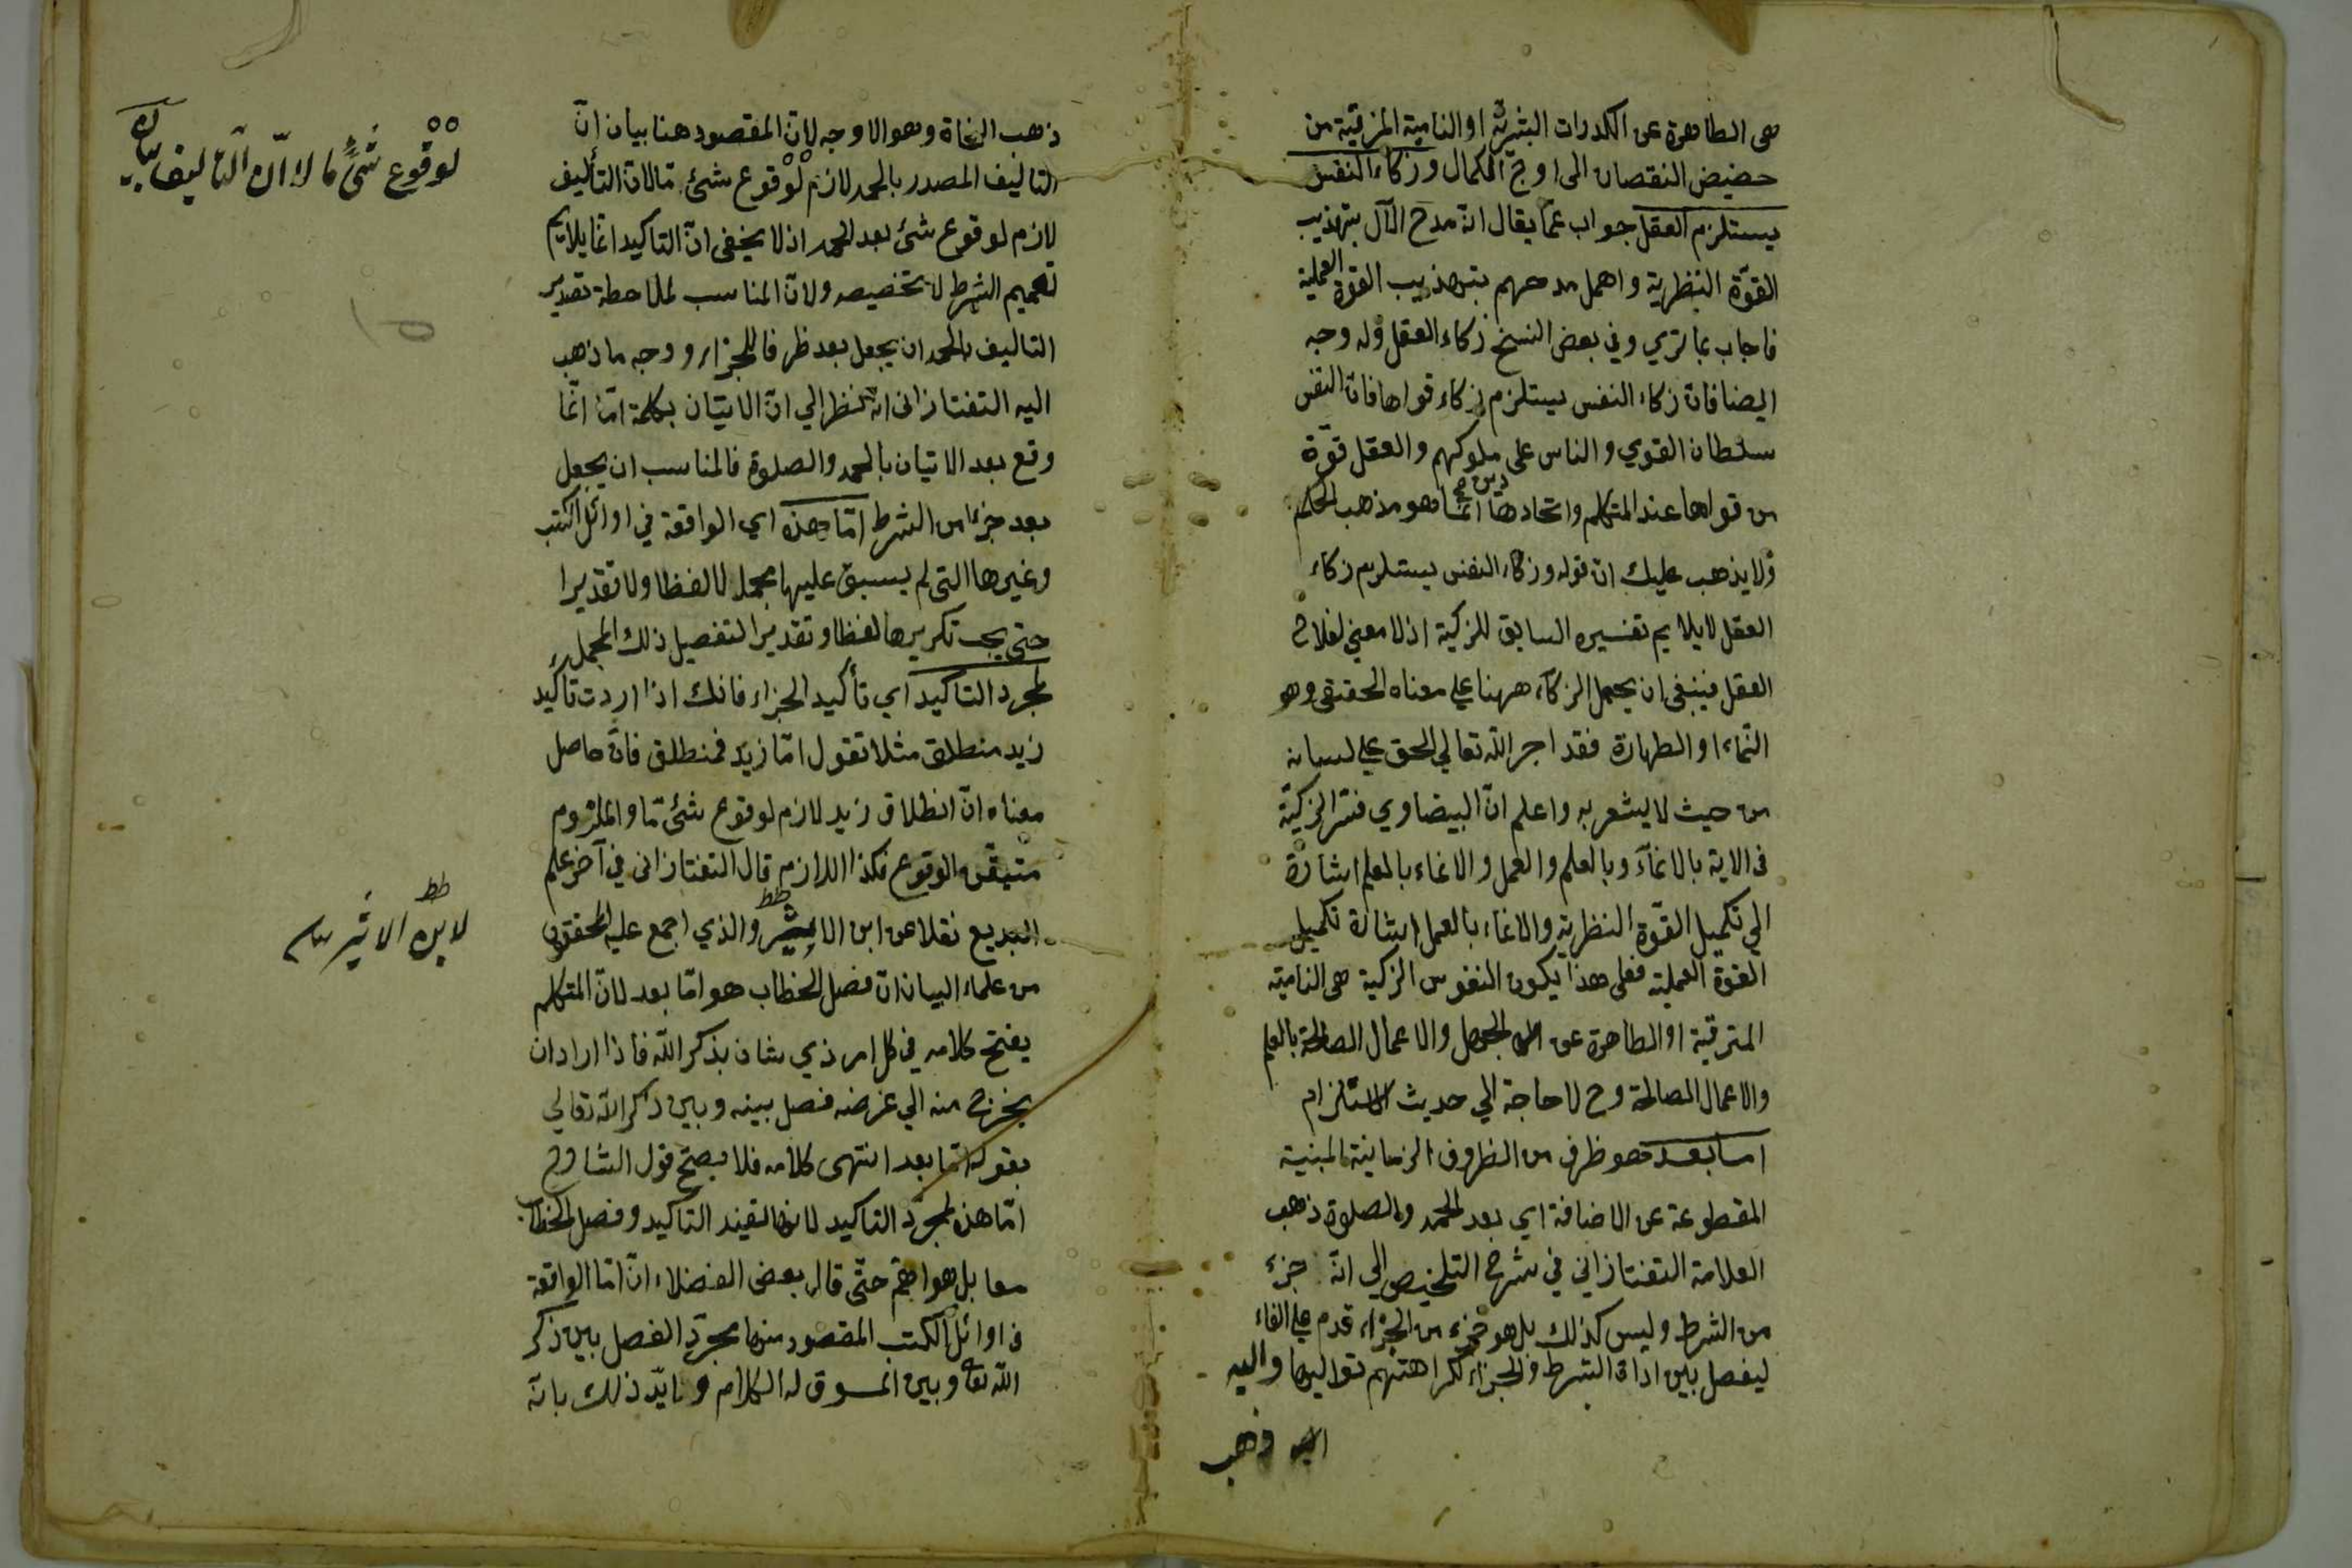 هى الطاهرة عن الكدرات البشرية او النامية المترقية من
حضيض النقصان الى اوج الكمال وزكاء النفس
يستلزم العقل جواب عمّا يقال انه مدح الآل بتهذيب
القوّة النظرية واهمل مدحهم بتهذيب القوة العملية
فاجاب بما ترى وفي بعض النسخ زكاء العقل وله وجه
ايضا فان زكاء النفس يستلزم زكاء قواها فان النفس
سلطان القوي والناس على ملوكهم والعقل قوّة
من قواها عند المتكلم واتحادها انما هو مذهب الحكيم
ولا يذهب عليك ان قوله وزكاء النفس يستلزم زكاء
العقل لا يلايم تفسيره السابق للزكية اذ لا معنى لفلاح
العقل فينبغى ان يحمل الزكاء ههنا على معناه الحقيقى وهو
النّماء او الطهارة فقد اجر الله تعالي الحق على لسانه
من حيث لا يشعر به واعلم انّ البيضاوي فسّر الزكيّة
فى الاية بالانماء وبالعلم والعمل والانماء بالعلم اشارة
الي تكميل القوّة النظرية والانماء بالعمل اشارة تكميل
القوّة العملية فعلى هذا يكون النفوس الزكية هى النامية
المترقية او الطاهرة عن الجهل والاعمال الصالحة بالعلم
والاعمال الصالحة وح لا حاجة الي حديث الاستلزام
اما بعد هو ظرف من الظروف الزمانية المبنية
المقطوعة عن الاضافة اي بعد الحمد والصلوة ذهب
العلامة التفتازاني في شرح التلخيص الي انّه جزء
من الشرط وليس كذلك بل هو جزء من الجزاء قدم على الفاء
ليفصل بين اداة الشرط والجزاء لكراهتهم تواليها واليه
ذهب
ذهب النحاة وهو الاوجه لانّ المقصود هنا بيان انّ
التاليف المصدر بالحمد لازم لوقوع شئ ما لان التأليف
لازم لوقوع شئ بعد الحمد اذ لا يخفى انّ التاكيد انما يلايم
تعميم الشرط لا تخصيصه ولانّ المناسب لملاحظة تصدير
التاليف بالحمد ان يجعل بعد ظرفا للجزاء ووجه ما ذهب
اليه التفتازانى انه نظر الي انّ الاتيان بكلمة امّا انما
وقع بعد الاتيان بالحمد والصلوة فالمناسب ان يجعل
بعد جزءا من الشرط امّا هذه اي الواقعة في اوائل الكتب
وغيرها التى لم يسبق عليها مجمل لا لفظا ولا تقديرا
حتى يجب تكريرها لفظا وتقديرا لتفصيل ذلك المجمل
لمجرد التاكيد اي تأكيد الجزاء فانك اذا اردت تأكيد
زيد منطلق مثلا تقول امّا زيد فمنطلق فانّ حاصل
معناه انّ انطلاق زيد لازم لوقوع شئ مّا والملزوم
متيقّن الوقوع فكذا اللازم قال التفتازانى في آخر علم
البديع نقلا عن ابن الاثير والذي اجمع عليه المحققون
من علماء البيان انّ فصل الخطاب هو امّا بعد لانّ المتكلم
يفتح كلامه في كل امر ذي شان بذكر الله فاذا اراد ان
يخرج منه الي غرضه فصل بينه وبين ذكر الله تعالي
بقوله امّا بعد انتهى كلامه فلا يصحّ قول الشارح
امّا هذه لمجرّد التاكيد لانها تفيد التاكيد وفصل الخطاب
معا بل هو اهمّ حتّى قال بعض الفضلاء انّ امّا الواقعة
فى اوائل الكتب المقصود منها مجرّد الفصل بين ذكر
الله تعالى وبين المسوق له الكلام وايّد ذلك بانّه
لوقوع شئ ما لا انّ التاليف
لابن الاثير